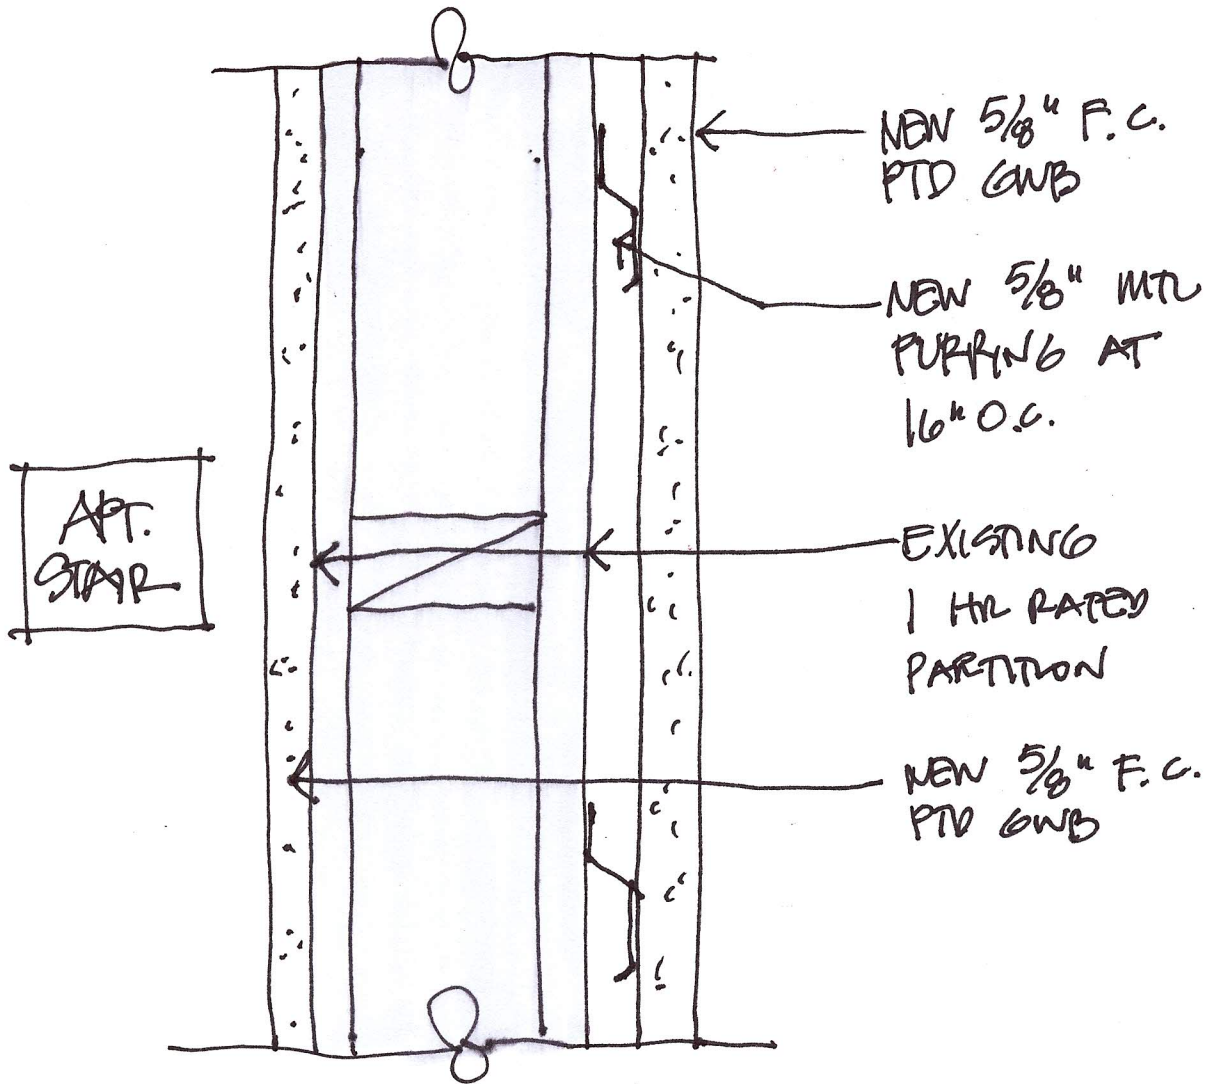 NEW 5/8" F.C.
PTD GWB
NEW 5/8" MTL
FURRING AT
16" O.C.
APT.
STAIR
EXISTING
1 HR RATED
PARTITION
NEW 5/8" F.C.
PTD GWB